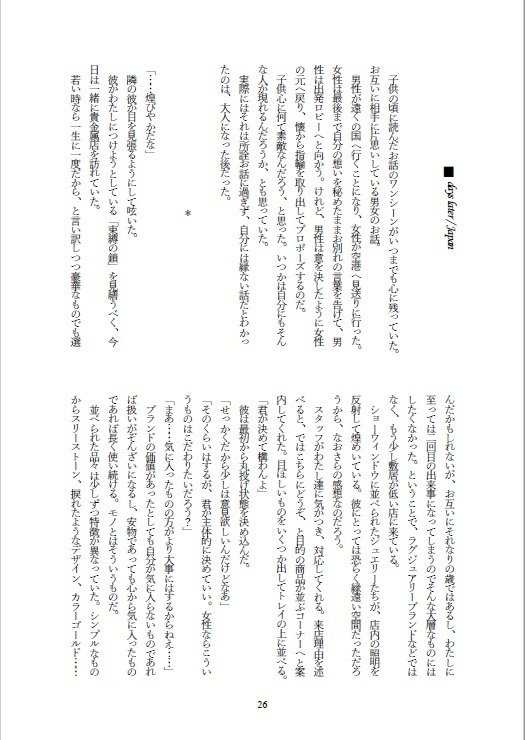 ■ days later / Japan
子供の頃に読んだお話のワンシーンがいつまでも心に残っていた。
お互いに相手に片思いしている男女のお話。
男性が遠くの国へ行くことになり、女性が空港へ見送りに行った。
女性は最後まで自分の想いを秘めたままお別れの言葉を告げて、男
性は出発ロビーへと向かう。けれど、男性は意を決したように女性
の元へ戻り、懐から指輪を取り出してプロポーズするのだ。
子供心に何て素敵なんだろう、と思った。いつかは自分にもそん
な人が現れるんだろうか、とも思っていた。
実際にはそれは所詮お話に過ぎず、自分には縁ない話だとわかっ
たのは、大人になった後だった。
*
「……煌びやかだな」
隣の彼が目を見張るようにして呟いた。
彼がわたしにつけようとしている「束縛の鎖」を見繕うべく、今
日は一緒に貴金属店を訪れていた。
若い時なら一生に一度だから、と言い訳しつつ豪華なものでも選
んだかもしれないが、お互いにそれなりの歳ではあるし、わたしに
至っては二回目の出来事になってしまうのでそんな大層なものには
したくなかった。ということで、ラグジュアリーブランドなどでは
なく、もう少し敷居が低い店に来ている。
ショーウィンドウに並べられたジュエリーたちが、店内の照明を
反射して煌めいている。彼にとっては恐らく縁遠い空間だっただろ
うから、なおさらの感想なのだろう。
スタッフがわたし達に気がつき、対応してくれる。来店理由を述
べると、ではこちらにどうぞ、と目的の商品が並ぶコーナーへと案
内してくれた。目ぼしいものをいくつか出してトレイの上に並べる。
「君が決めて構わんよ」
彼は最初から丸投げ状態を決め込んだ。
「せっかくだから少しは意見欲しいんだけどなあ」
「そのくらいはするが、君が主体的に決めていい。女性ならこうい
うものはこだわりたいだろう？」
「まあ……気に入ったものの方がより大事にはするからねえ……」
ブランドの価値があったとしても自分が気に入らないものであれ
ば扱いがぞんざいになるし、安物であっても心から気に入ったもの
であれば長く使い続ける。モノとはそういうものだ。
並べられた品々は少しずつ特徴が異なっていた。シンプルなもの
からスリーストーン、捩れたようなデザイン、カラーゴールド……
26